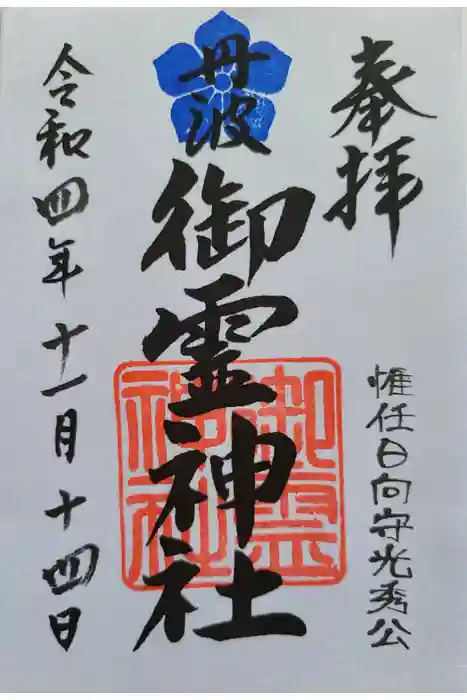 奉拝
惟任日向守光秀公
丹波
御霊神社
御霊
神社
令和四年十一月十四日